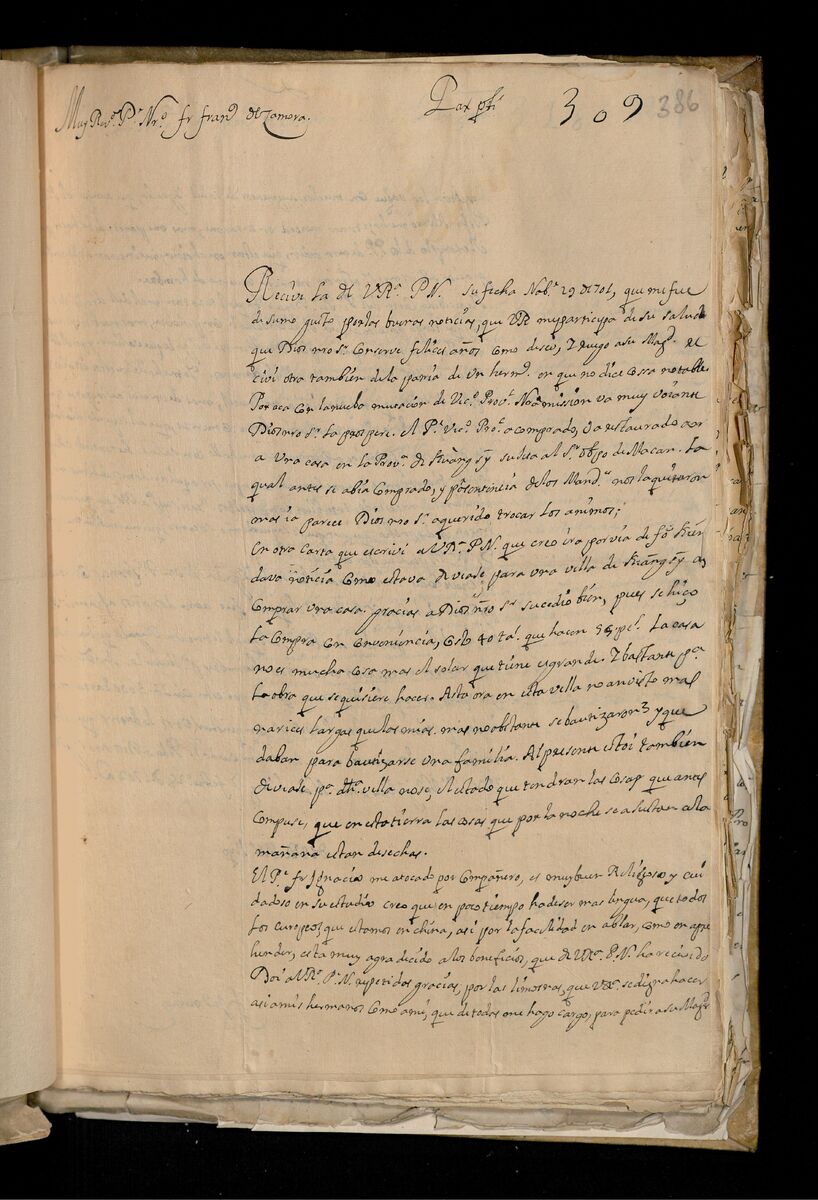 Muy Rev.º P.e Nr.º fr fran.co de Zamora.
Pax xp̄ti
309
386
Recivi la de V R.a P.N. su fecha Nob.e 29 de 701, que me fue
de sumo gusto por las buenas noticias, que VR me participa de su salud
que Dios nro S.r conserve felices años como deseo, y ruego a su Mag.d. re
civi otra tambien de la patria de un herm.o en que no dice cossa notable
Por aca con la nueba mutacion de Vic.o Prov.l Nra mision va muy voiante
Dios nro S.r la prospere. el P.e Vic.o Pro.l a comprado, o a restaurado aor
a una casa en la Prov.a de Kuangsy sulua al S.r Obpo de Macan. La
qual antes se abia comprado, y por sentencia de los Mand.s nos la quitaron
mas ia parece Dios nro S.r a querido trocar los animos;
En otra carta que escrivi a V R.a P.N. que creo ira por via de fo Kien
dava noticia como estava de viaje para una villa de Kuangsy a
comprar una casa. gracias a Dios nro S.r sucedio bien, pues se hiço
la compra con conveniencia, costo 40 ta.s que hacen 55 pe.s. La casa
no es mucha cosa mas el solar que tiene es grande. y bastante p.a
la obra que se quisiere hacer. Asta ora en esta villa no an visto mas
narices largas que las mias. mas no obstante se bautizaron 3 y que
daban para bautizarse una familia. Al presente estoi tambien
de viaje p.a dha villa no se, el estado que tendran las cosas que antes
compuse, que en esta tierra las cosas que por la noche se asientan a la
mañana estan desechas.
El P.e fr Ignacio me a tocado por compañero, es muy buen Religioso y cui
dadoso en su estudio creo que en poco tiempo ha de ser mas lingua, que todos
los europeos, que estamos en china, asi por la facilidad en ablar, como en apre
hender, esta muy agradecido a los beneficios, que de V R.a P.N. ha recivido
Doi a V R.a P.N. repetidas gracias, por las limosnas, que V R.a se digna hacer
asi a mis hermanos como a mi, que de todas me hago cargo, para pedir a su Mag.d